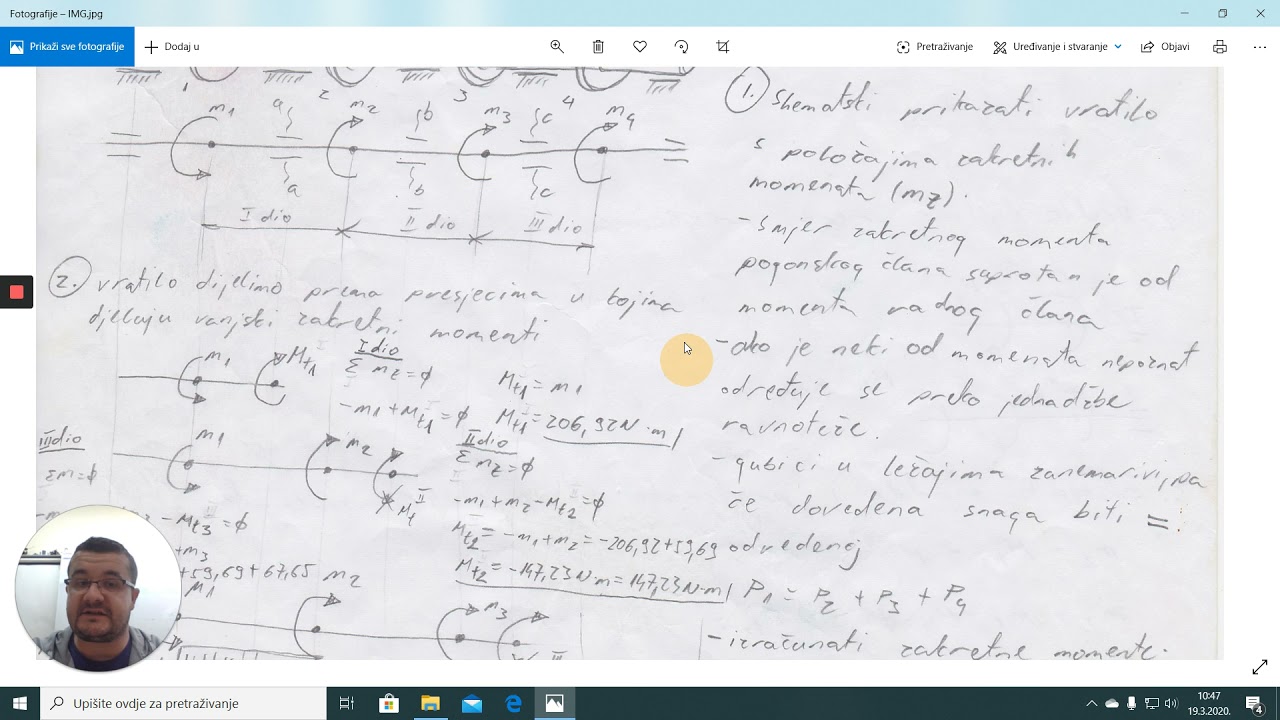 Fotografije – IMG.jpg
Prikaži sve fotografije
Dodaj u
Pretraživanje
Uređivanje i stvaranje
Objavi
1 2 3 4
m1 a m2 b m3 c m4
a b c
I dio II dio III dio
1. Shematski prikazati vratilo
s položajima zakretnih
momenata (mz).
- smjer zakretnog momenta
pogonskog člana suprotan je od
momenta radnog člana
- ako je neki od momenata nepoznat
određuje se preko jednadžbe
ravnoteže.
- gubici u ležajima zanemarivi, pa
će dovedena snaga biti =
odvedenoj
P1 = P2 + P3 + P4
- izračunati zakretne momente.
2. vratilo dijelimo prema presjecima u kojima
djeluju vanjski zakretni momenti
m1 Mt1
I dio
Σ mz = φ
-m1 + Mt1 = φ
Mt1 = m1
Mt1 = 206,92 N·m
m1 m2 Mt II
II dio
Σ mz = φ
-m1 + m2 - Mt2 = φ
Mt2 = -m1 + m2 = -206,92 + 59,69
Mt2 = -147,23 N·m = 147,23 N·m
III dio
Σm = φ
- Mt3 = φ
+ m3
+59,69 + 67,65
M1 m2 m3
III
Upišite ovdje za pretraživanje
10:47
19.3.2020.